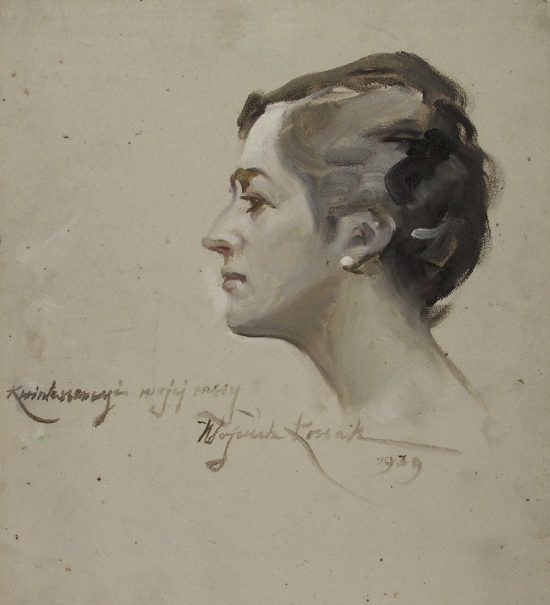 Kwintessencyi mojej rassy
Wojciech Kossak
1939